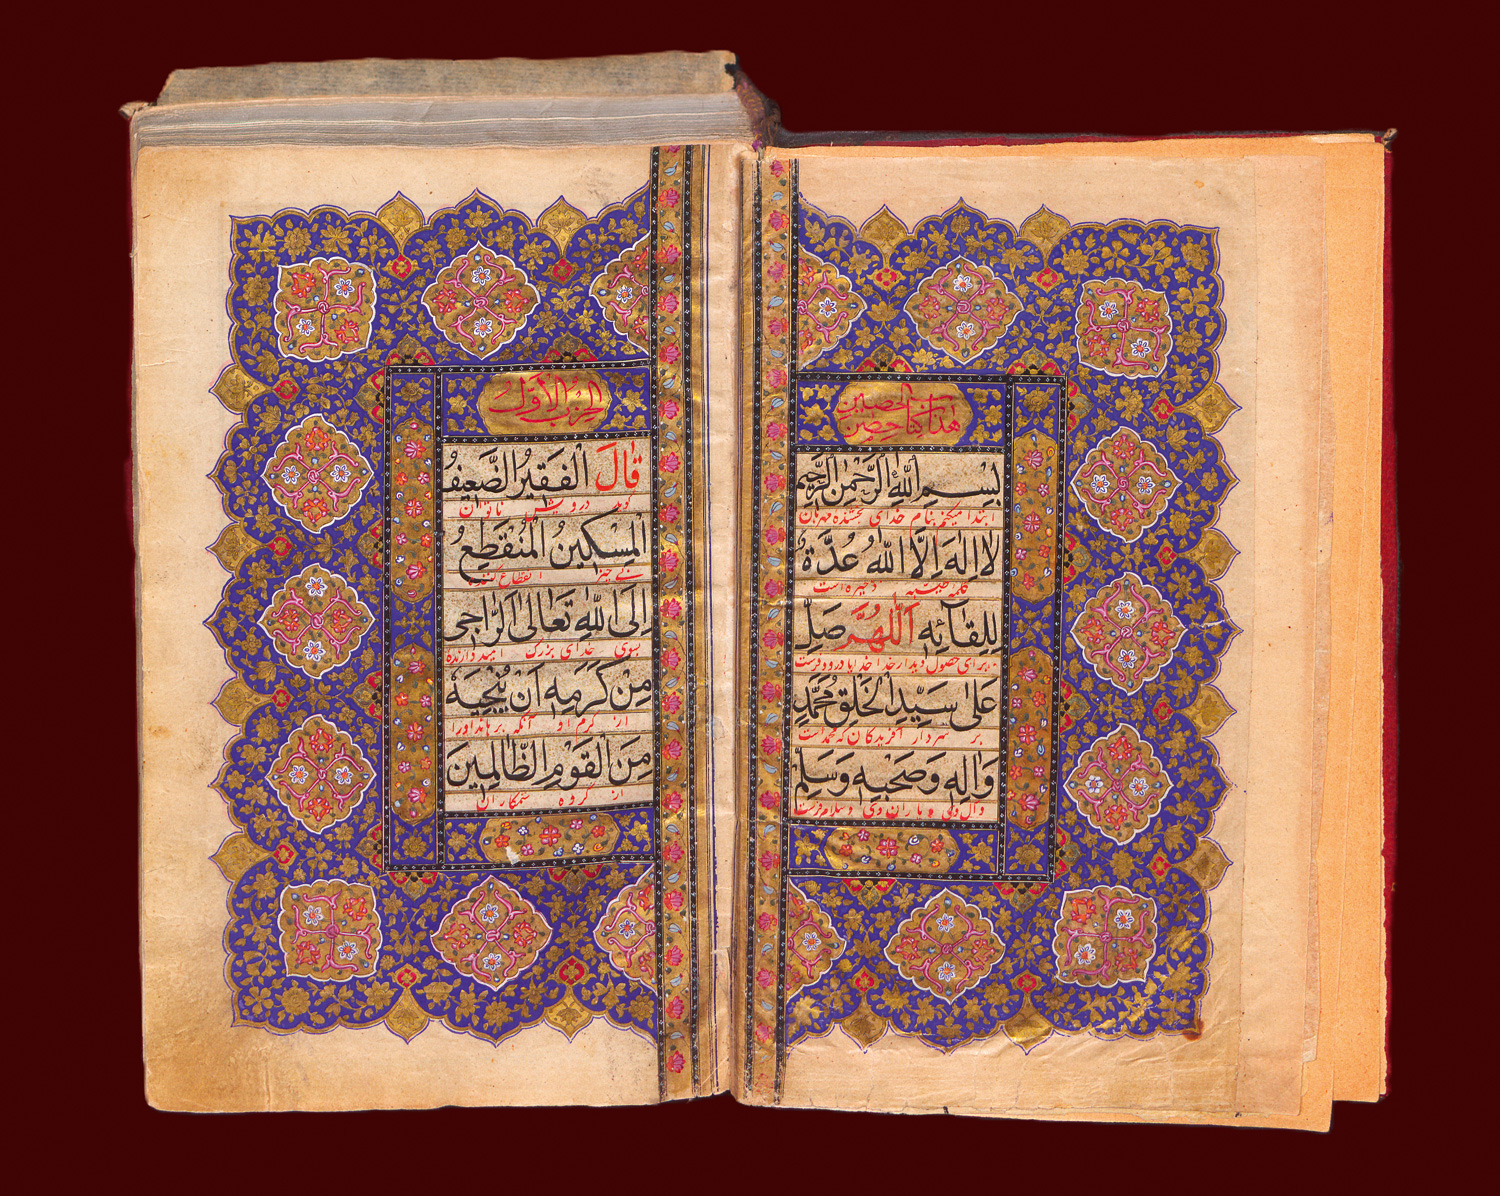 هذا كتاب حصن
الحصين
بِسْمِ اللّٰهِ الرَّحْمٰنِ الرَّحِيمِ
ابتدا میکنم بنام خدای بخشنده مهربان
لَا اِلٰهَ اِلَّا اللّٰهُ عُدَّةٌ
کلمه طیبه ذخیره است
لِلِقَآئِهٖ اَللّٰهُمَّ صَلِّ
برای حصول دیدار خدا خدایا درود فرست
عَلٰی سَيِّدِ الْخَلْقِ مُحَمَّدٍ
بر سردار آفریدگان که محمد است
وَاٰلِهٖ وَصَحْبِهٖ وَسَلِّمْ
و آل وی و یاران وی و سلام فرست
الحِزْبُ الْأَوَّلُ
قَالَ الْفَقِيرُ الضَّعِيفُ
گوید درویش ناتوان
الْمِسْكِينُ الْمُنْقَطِعُ
بی چیز انقطاع کننده
اِلَی اللّٰهِ تَعَالٰی الرَّاجِی
بسوی خدای بزرگ امید دارنده
مِنْ كَرَمِهٖ اَنْ يُنْجِيَهٗ
از کرم او آنکه برهاند اورا
مِنَ الْقَوْمِ الظَّالِمِينَ
از گروه ستمکاران